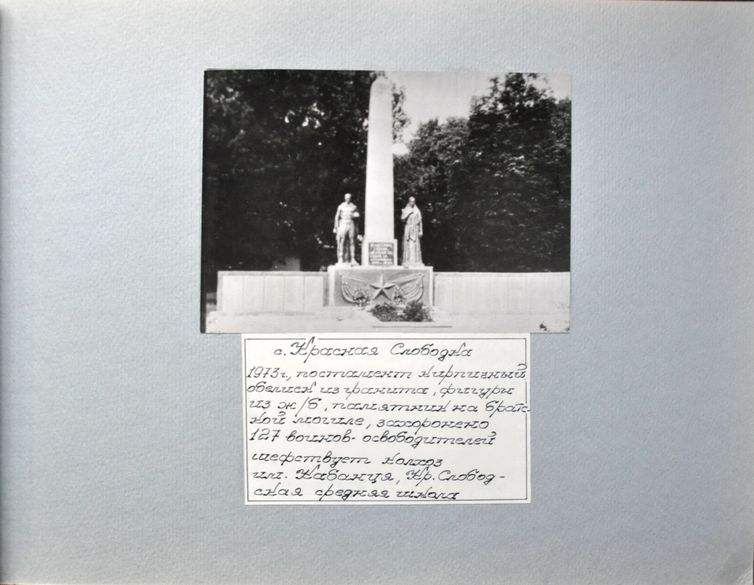 с. Красная Слободка
1973г., постамент кирпичный
обелиск из гранита, фигуры
из ж/б, памятник на братс-
кой могиле, захоронено
127 воинов-освободителей
шефствует колхоз
им. Кабанця, Кр. Слобод-
ская средняя школа